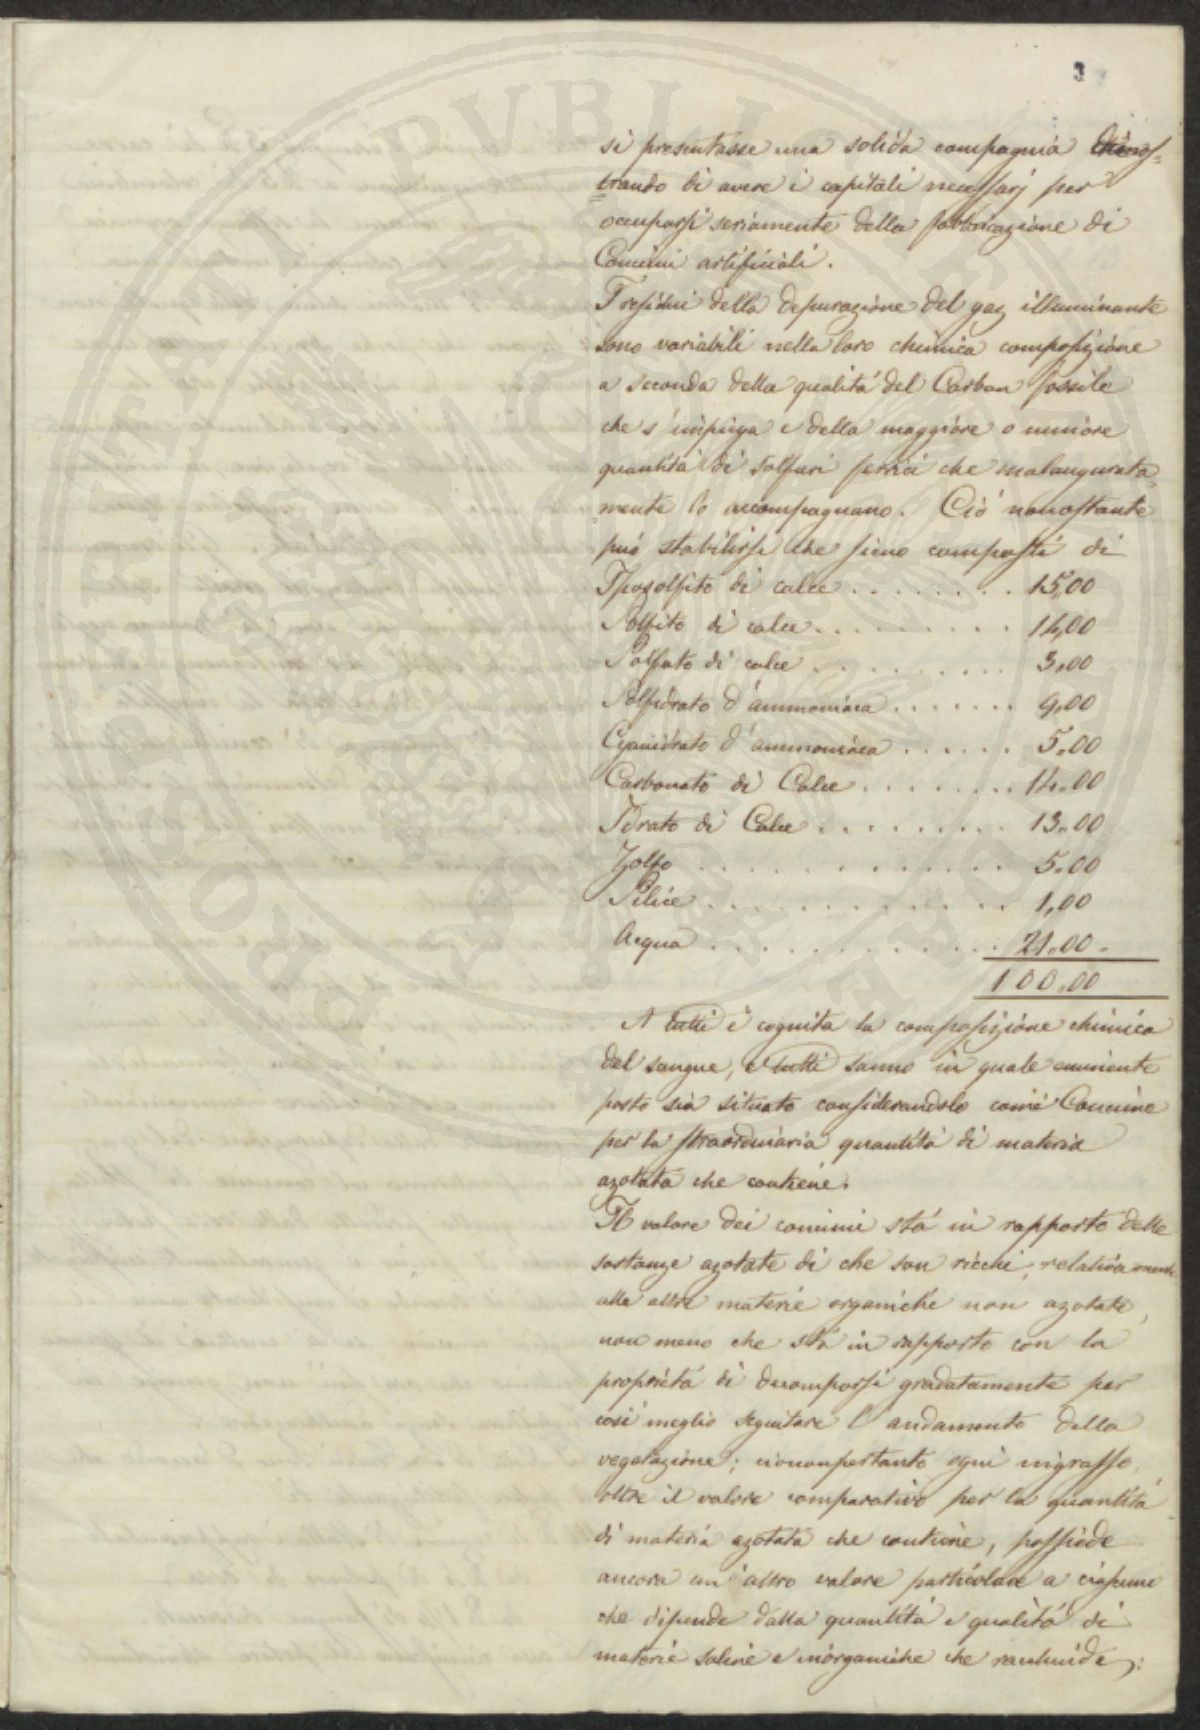 3
si presentasse una solida compagnia dimos=
trando di avere i capitali necessarj per
occuparsi seriamente della fabbricazione di
Concimi artificiali.
I residui della depurazione del gaz illuminante
sono variabili nella loro chimica composizione
a seconda della qualità del Carbon fossile
che s'impiega e della maggiore o minore
quantità di Solfuri ferrici che malaugurata=
mente lo accompagnano. Ciò nonostante
può stabilirsi che sieno composti di
Iposolfito di calce ........ 15,00
Solfito di calce ......... 14,00
Solfato di calce ......... 3.00
Solfidrato d'ammoniaca ....... 9.00
Cyanidrato d'ammoniaca ...... 5.00
Carbonato di Calce ........ 14.00
Idrato di Calce ......... 13.00
Zolfo ............ 5.00
Silice ............ 1,00
Acqua ............ 21.00.
100.00
A tutti è cognita la composizione chimica
del sangue, e tutti sanno in quale eminente
posto sia situato considerandolo come Concime
per la straordinaria quantità di materia
azotata che contiene.
Il valore dei concimi stà in rapporto delle
sostanze azotate di che son ricchi, relativamente
alle altre materie organiche non azotate,
non meno che stà in rapporto con la
proprietà di decomporsi gradatamente per
così meglio seguitare l'andamento della
vegetazione; ciononpertanto ogni ingrasso,
oltre il valore comparativo per la quantità
di materia azotata che contiene, possiede
ancora un'altro valore particolare a ciascuno
che dipende dalla quantità e qualità di
materie saline e inorganiche che racchiude;
PROPRIETÀ PVBLICA